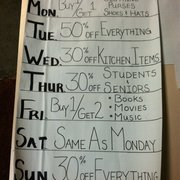 MON. BUY 1 GET 2 PURSES
SHOES & HATS
TUE. 50% OFF EVERYTHING
WED. 30% OFF KITCHEN ITEMS
THUR 30% OFF STUDENTS
SENIORS
FRI BUY 1/GET 2 • BOOKS
• MOVIES
• MUSIC
SAT SAME AS MONDAY
SUN 30% OFF EVERYTHING